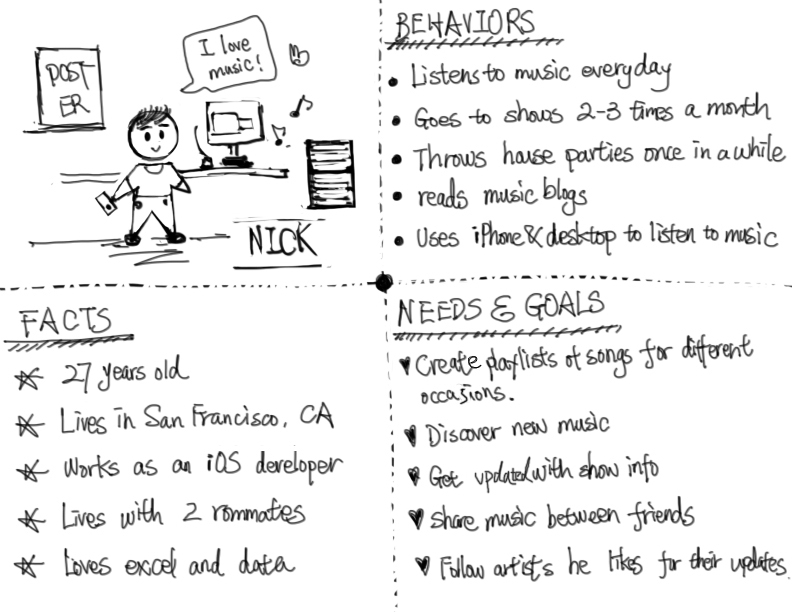 I love
music!
POST
ER
NICK
BEHAVIORS
Listens to music everyday
Goes to shows 2-3 times a month
Throws house parties once in a while
reads music blogs
Uses iPhone & desktop to listen to music
FACTS
27 years old
Lives in San Francisco, CA
Works as an iOS developer
Lives with 2 rommates
Loves excel and data
NEEDS & GOALS
Create playlists of songs for different
occasions.
Discover new music
Get updated with show info
Share music between friends
Follow artists he likes for their updates.